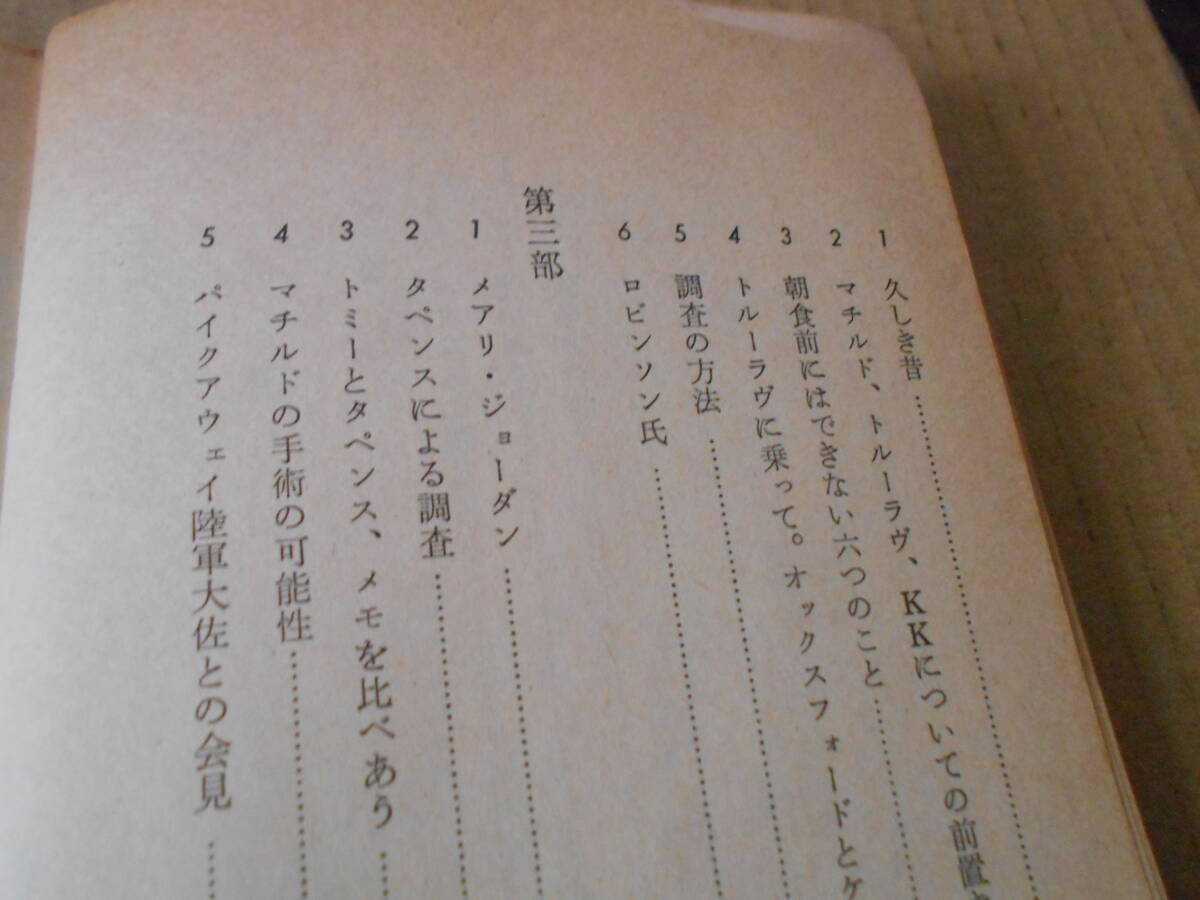 1 久しき昔
2 マチルド、トルーラヴ、KKについての前置
3 朝食前にはできない六つのこと
4 トルーラヴに乗って。オックスフォードとケ
5 調査の方法
6 ロビンソン氏
第三部
1 メアリ・ジョーダン
2 タペンスによる調査
3 トミーとタペンス、メモを比べあう
4 マチルドの手術の可能性
5 パイクアウェイ陸軍大佐との会見